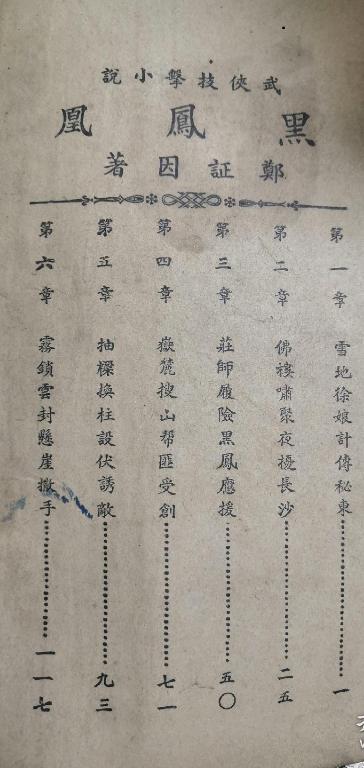 武俠技擊小說
黑鳳凰
鄭証因著
第一章 雪地徐娘計傳秘柬 一
第二章 佛棧嘯聚夜擾長沙 二五
第三章 莊師履險黑鳳應援 五〇
第四章 嶽麓搜山帮匪受創 七一
第五章 抽樑換柱設伏誘敵 九三
第六章 霧鎖雲封懸崖撒手 一一七